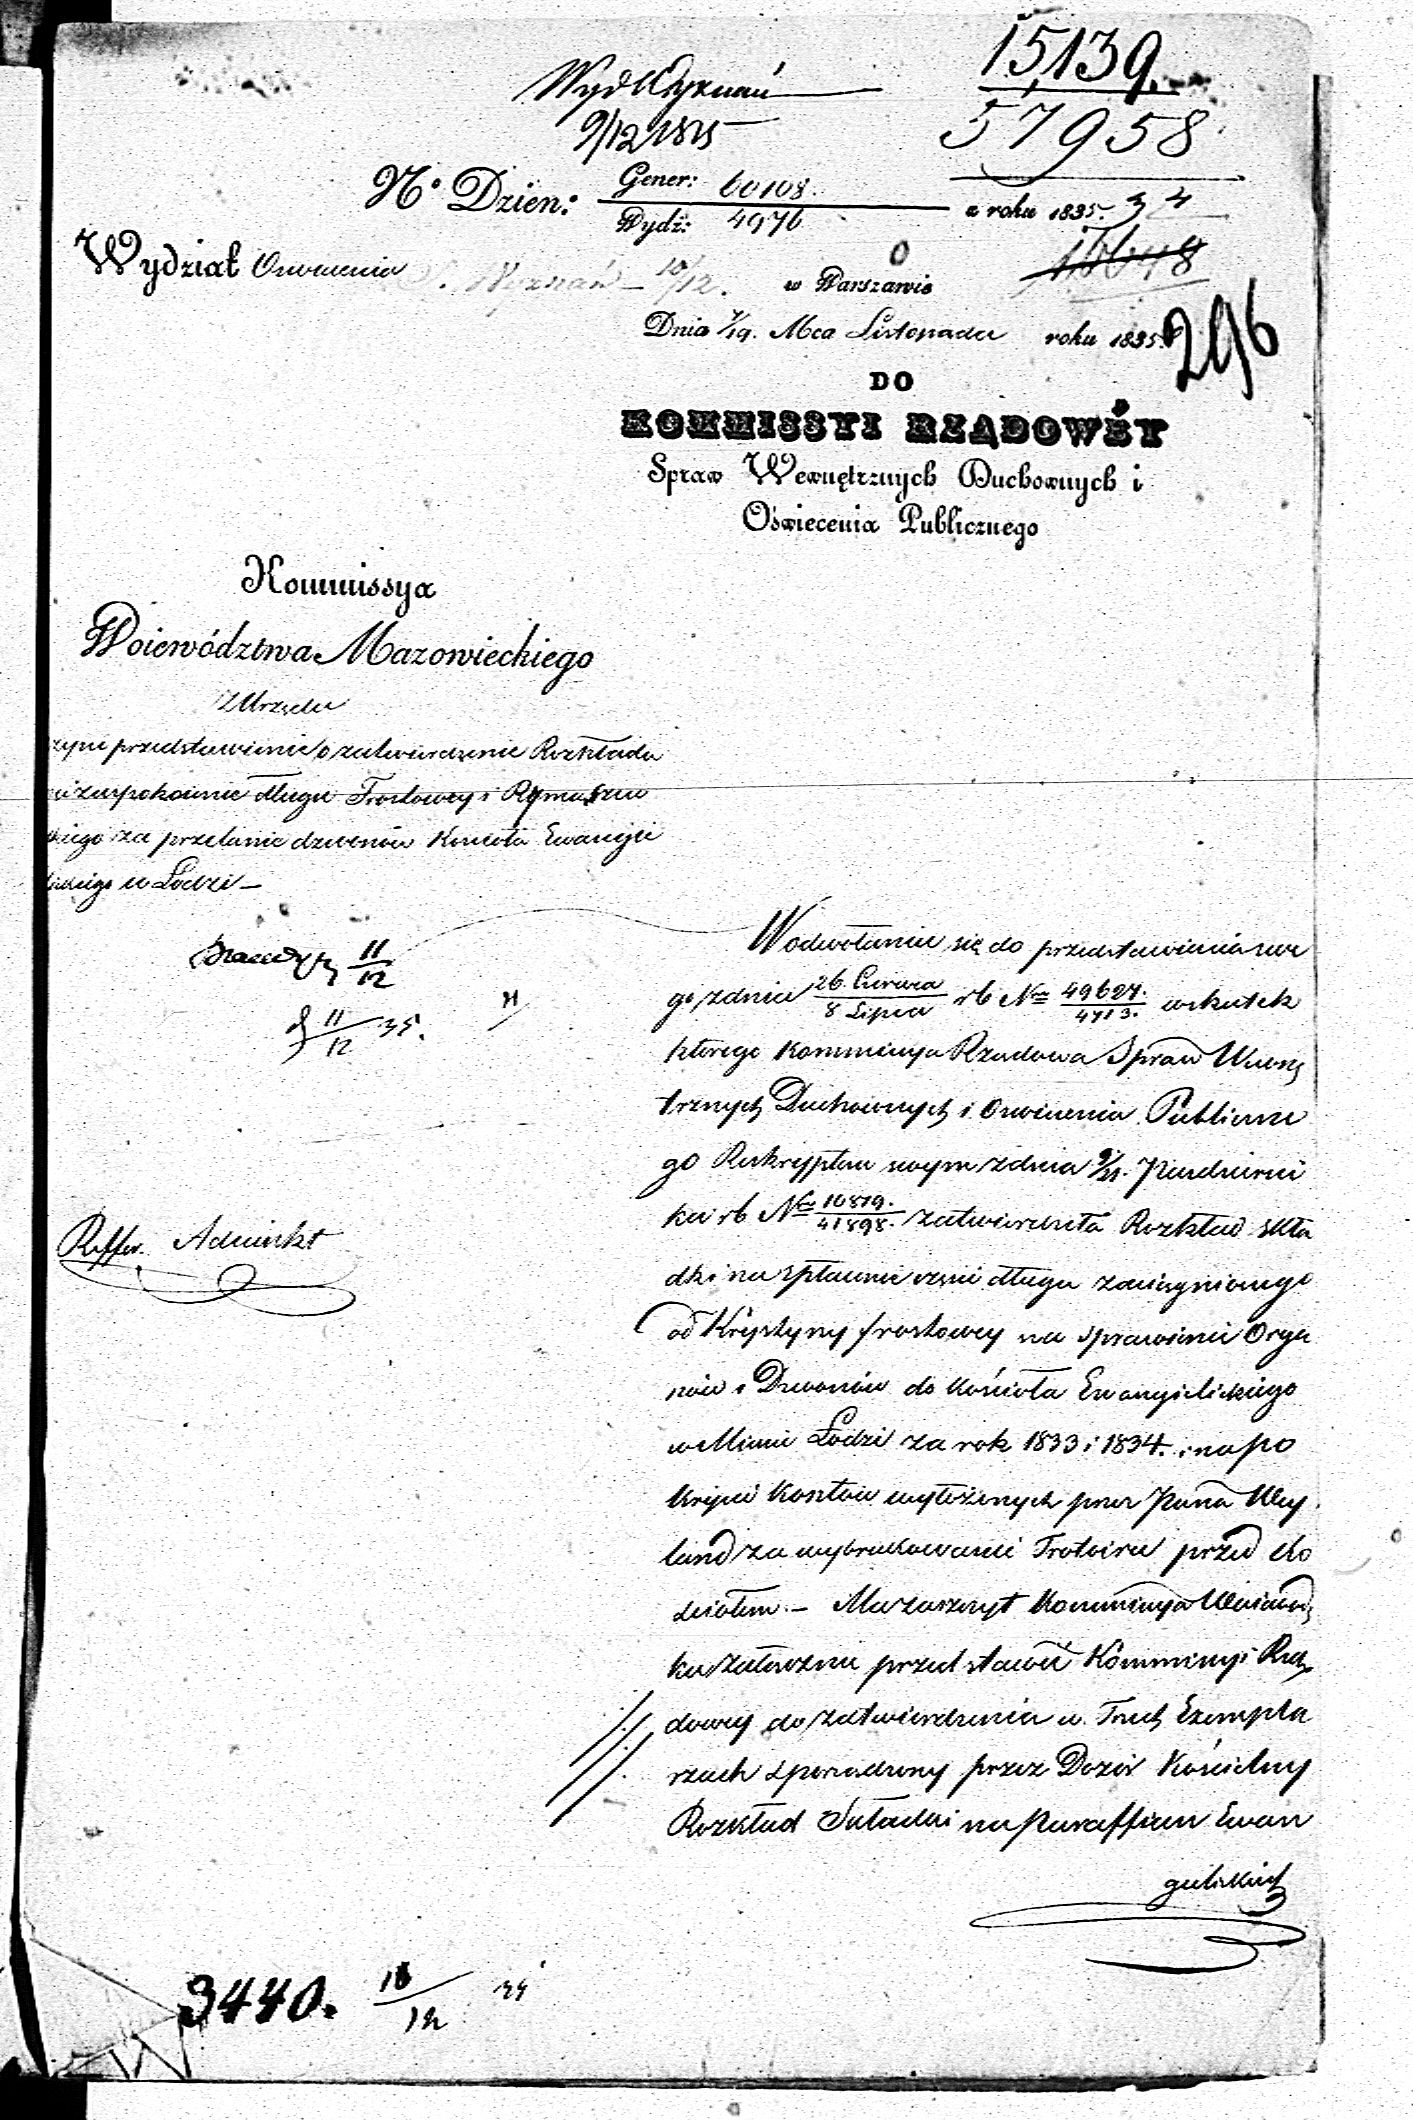 15,139.
57958
Wyd Wyznań
9/12 1835
No Dzien: Gener: 60108.
Wydz: 4976
z roku 1835.
Wydział Oswiecenia
Wyznań 10/12. w Warszawie
Dnia 7/19. Mca Listopada roku 1835.
296
DO
KOMMISSYI RZĄDOWÉY
Spraw Wewnętrznych Duchownych i
Oświecenia Publicznego
Kommissya
Woiewództwa Mazowieckiego
Z Urzędu
przedstawienie o zatwierdzenie Rozkładu
zaspokoienie długu Frostowey i
za przelanie dzwonów Kościoła Ewangie
w Łodzi —
11/12
11/12 35.
W odwołaniu się do przedstawienia swe
go z dnia 26 Czerwca / 8 Lipca rb No 49627. / 4713. wskutek
którego Kommissya Rządowa Spraw Wewnę
trznych Duchownych i Oswiecenia Publiczne
go Reskryptem swym z dnia 9/21. Pazdzierni
ka rb No 10819. / 41898. zatwierdziła Rozkład Skła
dki na spłacenie części długu zaciągnionego
od Krystyny Frostowey na sprawienie Orga
nów i Dzwonów do Kościoła Ewangielickiego
w Mieście Łodzi za rok 1833 i 1834. i na po
krycie kosztów wyłożonych przez Pana Wey
land za wybrukowanie Trotoiru przed Ko
ściołem. — Ma zaszczyt Kommissya Woiewódz
ka załącznie przedstawić Kommissyi Rzą
dowey do zatwierdzenia w Trzech Exempla
rzach sporządzony przez Dozór Kościelny
Rozkład Składki na Paraffian Ewan
gielickich
Reffer. Adiunkt
3440. 18/12 35